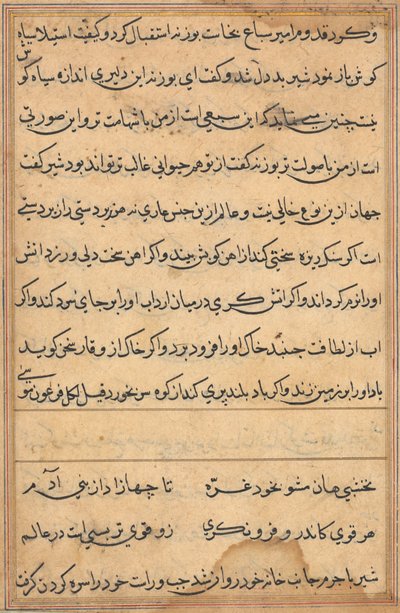 و کرد قدوم امیر سباع بخاست بوزنه استقبال کرد و کیفت استیلا سیاه
کوش باز نمود شیر بد دل شد و کفت ای بوزنه این دلیری اندازه سیاه کوش
نیست چنین می نماید که این سبعی است از من با شهامت تر و این صورتی
است از من با صولت تر بوزنه کفت از تو هر حیوانی غالب تر تواند بود شیر کفت
جهان ازین نوع خالی نیست و عالم ازین جنس عاری نه هر زبردستی را زبردستی
است اکر سنک ریزه سختی کند از اهن کوش بیند و کر اهن سخت دلی ورزد اتش
او را نرم کرداند و کر اتش کرمی در میان ارد اب او را بر جای سرد کند و اکر
اب از لطافت جنبد خاک او را فرو برد و اکر خاک از وقار سخن کوید
باد او را بر زمین زند و اکر باد بلند پری کند از کوه سر بخورد قیل لکل فرعون موسی
نخشبی هان مشو بخود غره تا چها زاد از بنی آدم
هر قوی کاندرو فرو نکری زو قوی تر بسی است در عالم
شیر با جرم جانب خانه خود روان شد چپ و راست خود را سره کردن کرفت